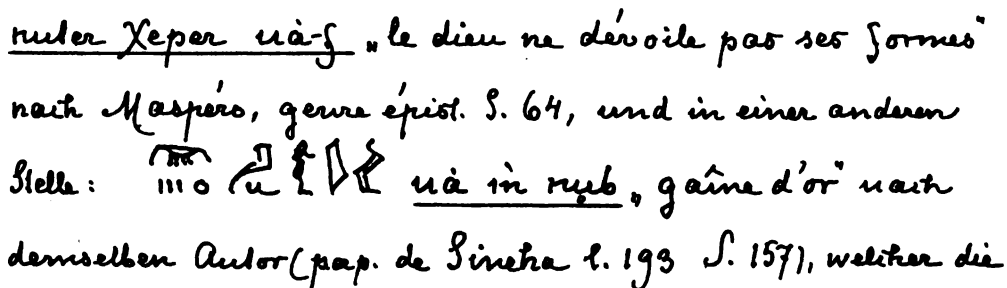 nuter χeper uà-f „le dieu ne dévoile pas ses formes"
nach Maspéro, genre épist. S. 64, und in einer anderen
Stelle: uà in nub „gaîne d'or" nach
demselben Autor (pap. de Sineha l. 193 S. 157), welcher die